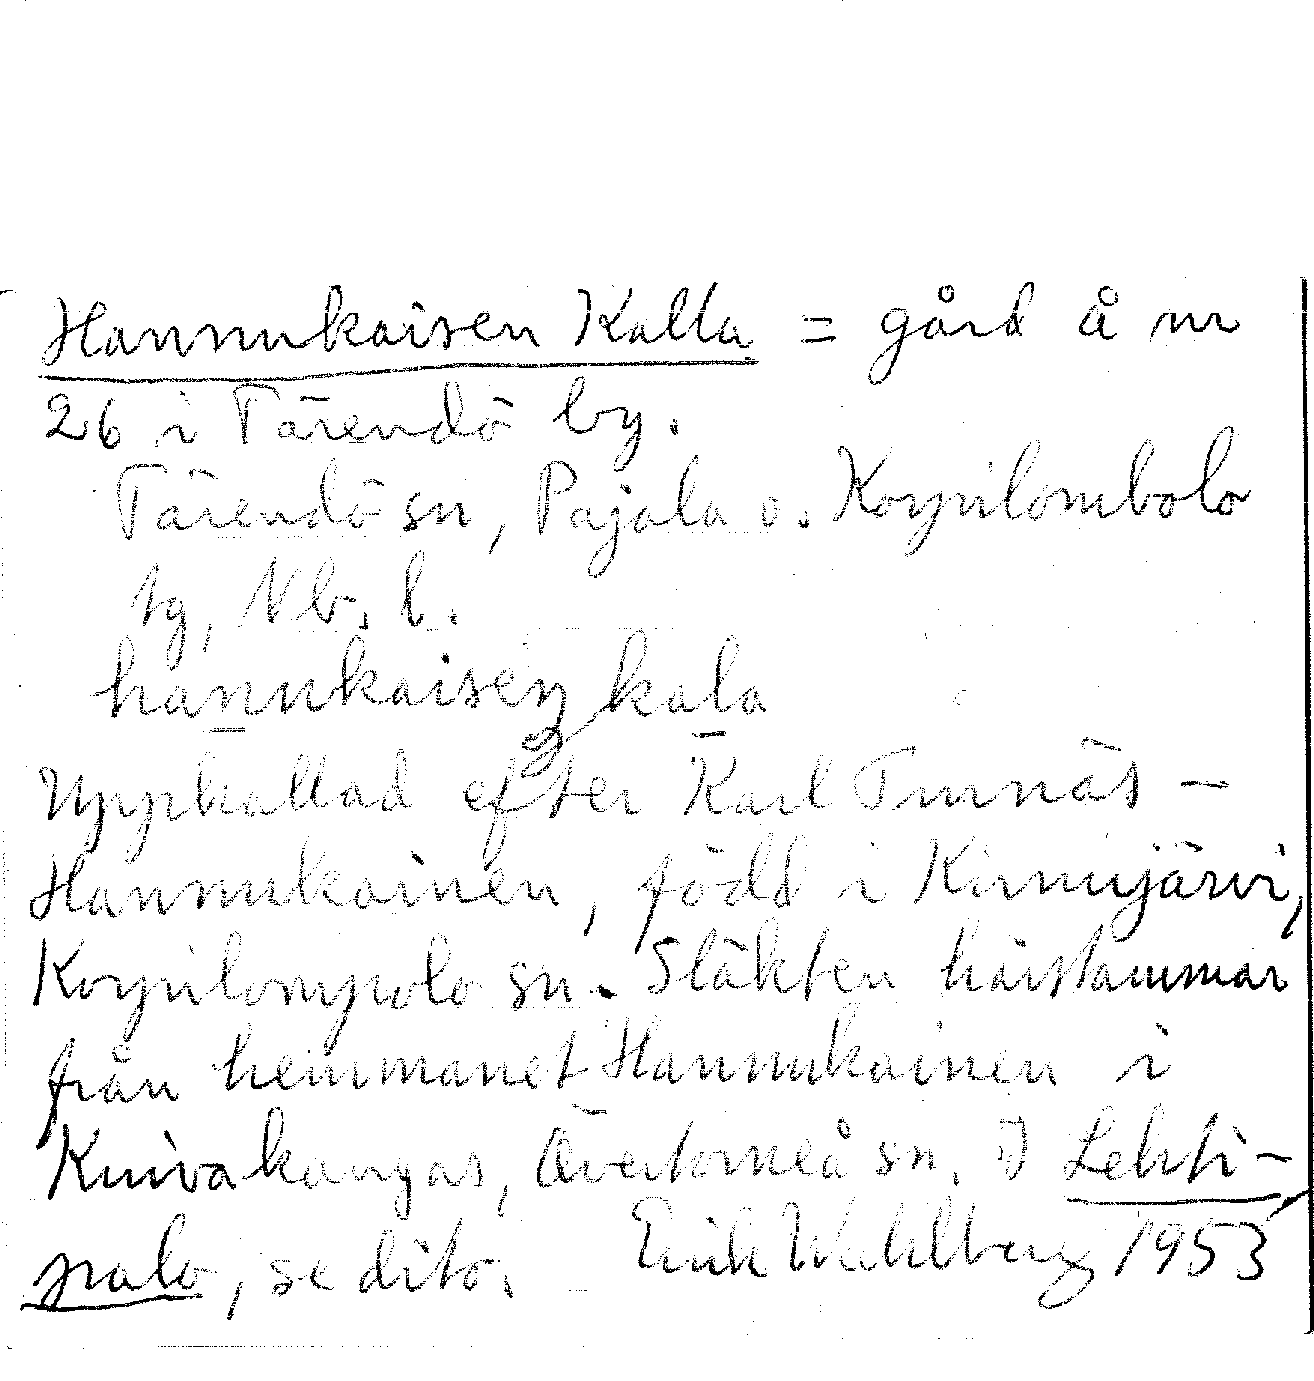 Hannukaisen Kalla = gård å nr
26 i Tärendö by.
Tärendö sn, Pajala o. Korpilombolo
tg, Nb. l.
hanukaiseŋ kala
Uppkallad efter Karl Turnäs -
Hannukainen, född i Kirnujärvi,
Korpilompolo sn. Släkten härstammar
från hemmanet Hannukainen i
Kuivakangas, Övertorneå sn. I Lehti-
palo, se dito. Erik Wahlberg 1953